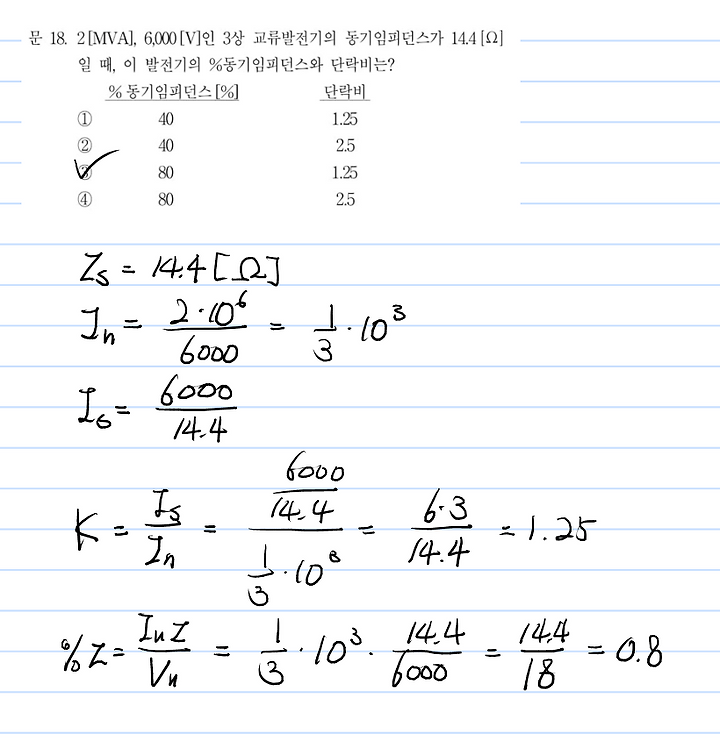 문 18. 2[MVA], 6,000[V]인 3상 교류발전기의 동기임피던스가 14.4[Ω]
일 때, 이 발전기의 %동기임피던스와 단락비는?
% 동기임피던스[%] 단락비
① 40 1.25
② 40 2.5
③ 80 1.25
④ 80 2.5
Zs = 14.4 [Ω]
In = 2·10^6 / 6000 = 1/3 · 10^3
Is = 6000 / 14.4
K = Is / In = (6000 / 14.4) / (1/3 · 10^3) = 6·3 / 14.4 = 1.25
%Z = InZ / Vn = 1/3 · 10^3 · 14.4 / 6000 = 14.4 / 18 = 0.8